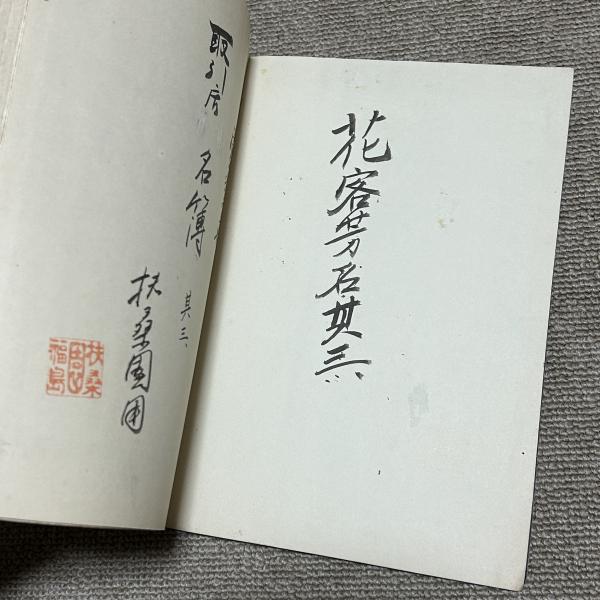 花客芳名其三
取引店
名簿
其三
扶桑園用
扶桑
園
福島